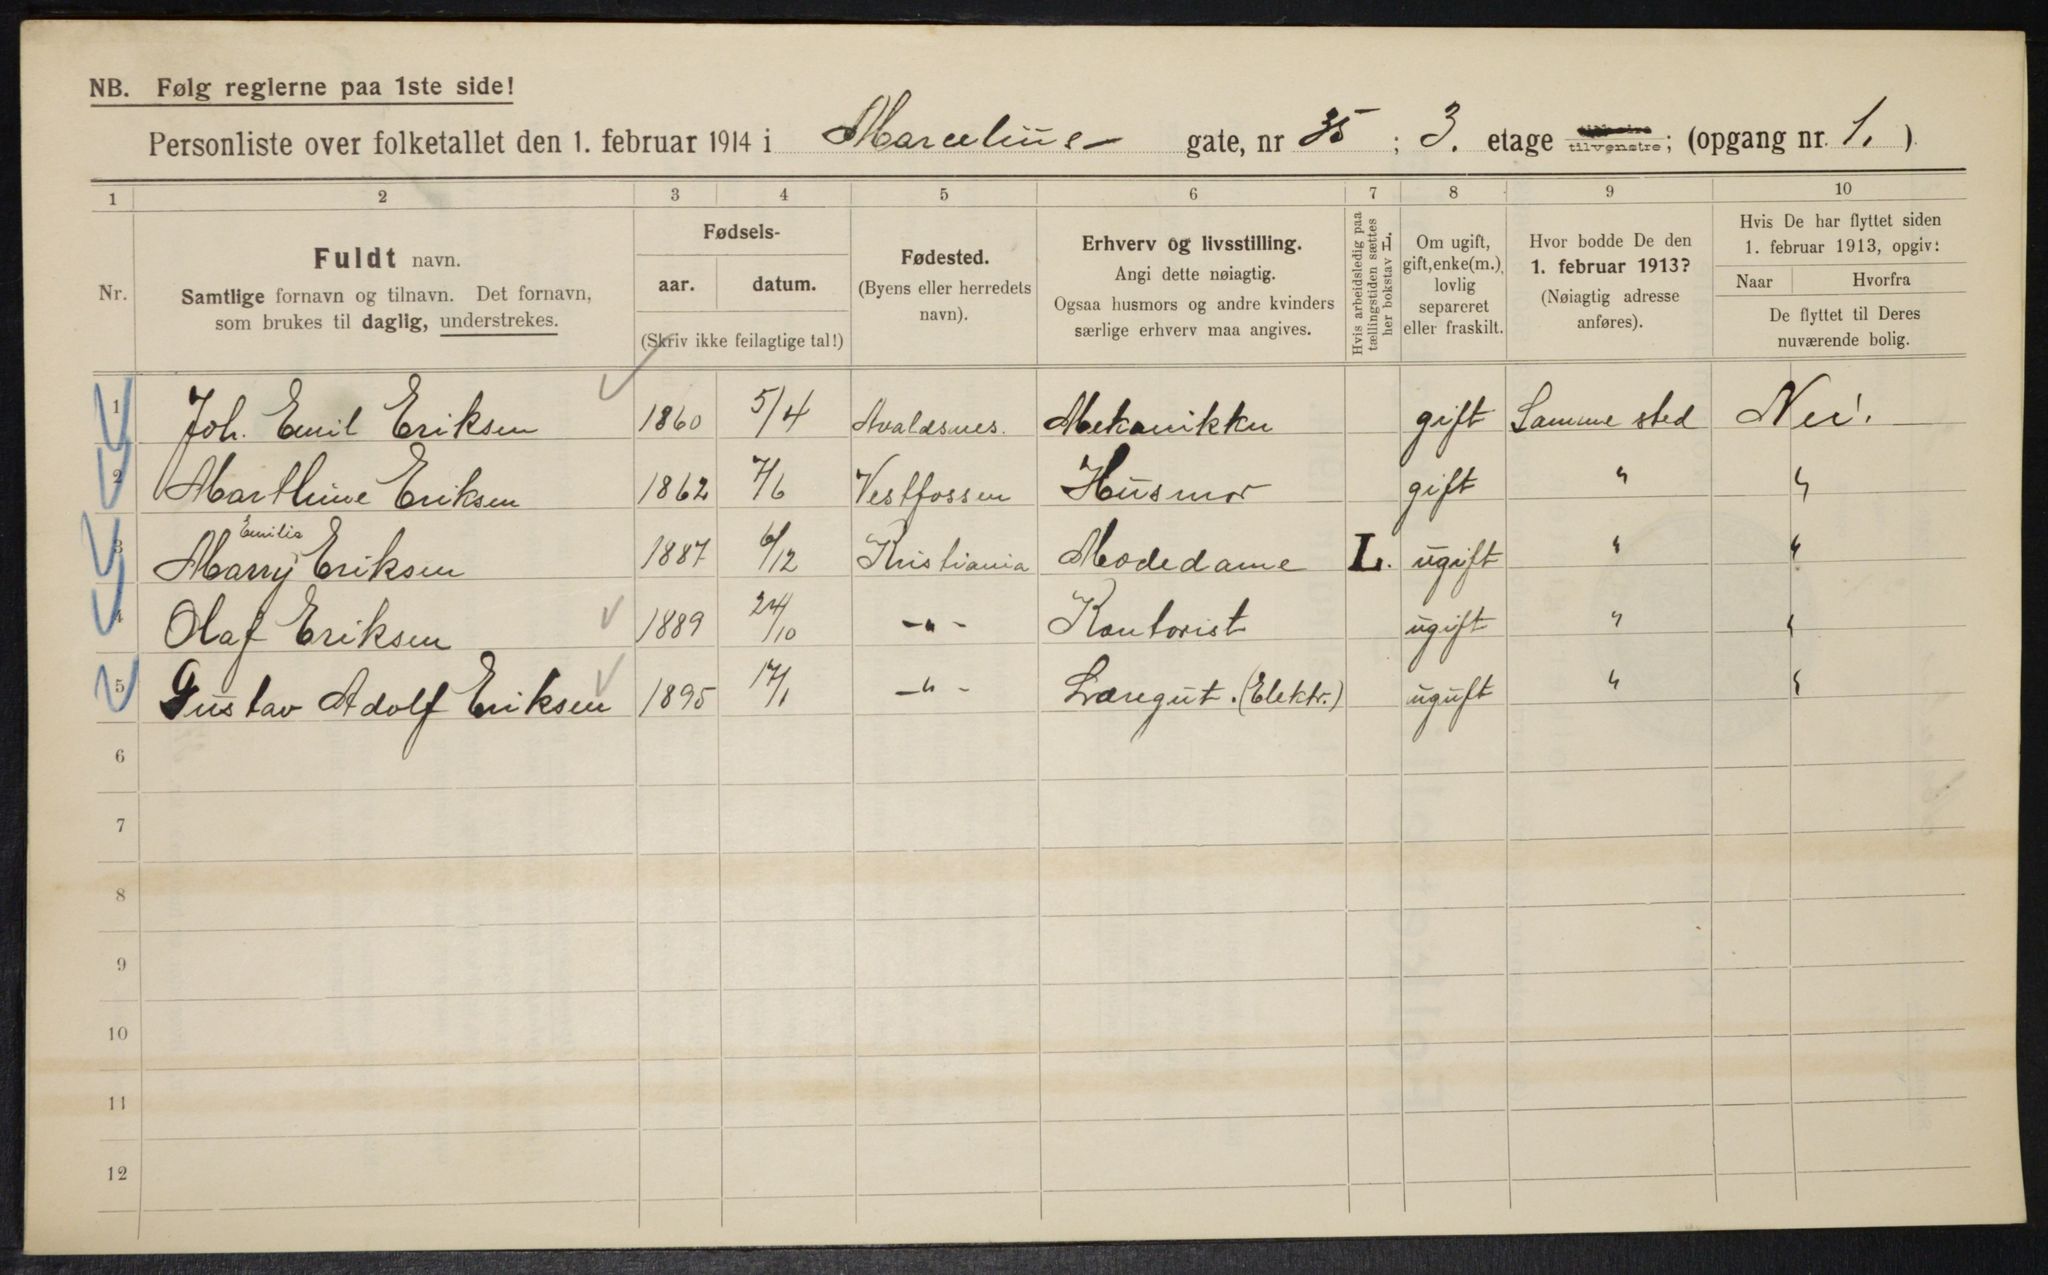 NB. Følg reglerne paa 1ste side!
Personliste over folketallet den 1. februar 1914 i Marcelines gate, nr 35 ; 3. etage tilvenstre; (opgang nr. 1. )
1 2 3 4 5 6 7 8 9 10
Nr.
Fuldt navn.
Samtlige fornavn og tilnavn. Det fornavn,
som brukes til daglig, understrekes.
Fødsels-
aar. datum.
(Skriv ikke feilagtige tal!)
Fødested.
(Byens eller herredets
navn).
Erhverv og livsstilling.
Angi dette nøiagtig.
Ogsaa husmors og andre kvinders
særlige erhverv maa angives.
Hvis arbeidsledig paa
tællingstiden sættes
her bokstav L.
Om ugift,
gift, enke(m.),
lovlig
separeret
eller fraskilt.
Hvor bodde De den
1. februar 1913?
(Nøiagtig adresse
anføres).
Hvis De har flyttet siden
1. februar 1913, opgiv:
Naar Hvorfra
De flyttet til Deres
nuværende bolig.
1 Joh. Emil Eriksen 1860 5/4 Avaldsnes. Mekanikker gift Samme sted Nei.
2 Marthine Eriksen 1862 7/6 Vestfossen Husmor gift " "
Emilie
3 Marry Eriksen 1887 6/12 Kristiania Modedame L. ugift " "
4 Olaf Eriksen 1889 24/10 -"- Kontorist ugift " "
5 Gustav Adolf Eriksen 1895 17/1 -"- Læregut. (Elektr.) ugift " "
6
7
8
9
10
11
12